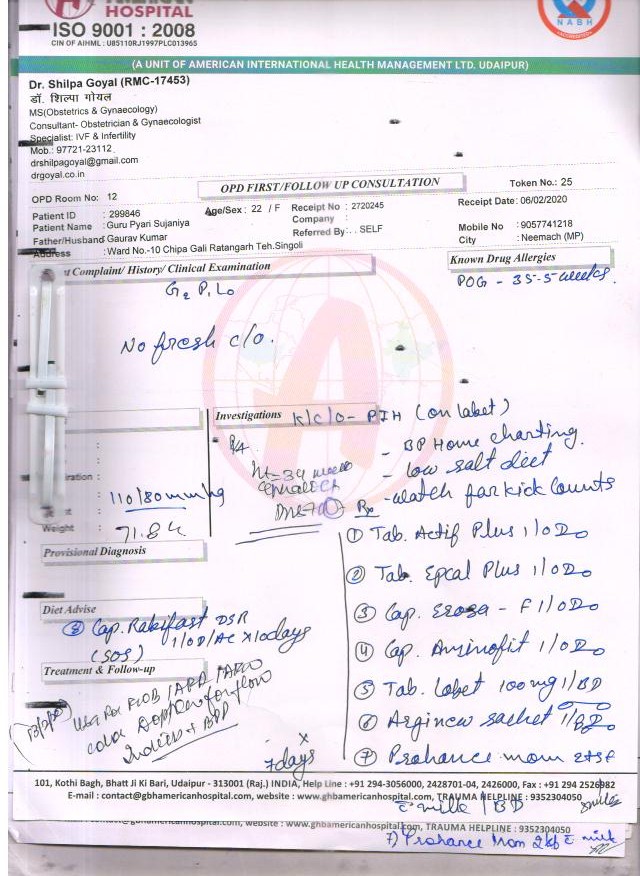 HOSPITAL
ISO 9001 : 2008
CIN OF AIHML : U85110RJ1997PLC013965
NABH
(A UNIT OF AMERICAN INTERNATIONAL HEALTH MANAGEMENT LTD. UDAIPUR)
Dr. Shilpa Goyal (RMC-17453)
डॉ. शिल्पा गोयल
MS(Obstetrics & Gynaecology)
Consultant- Obstetrician & Gynaecologist
Specialist: IVF & Infertility
Mob.: 97721-23112
drshilpagoyal@gmail.com
drgoyal.co.in
OPD Room No: 12
OPD FIRST/FOLLOW UP CONSULTATION
Token No.: 25
Patient ID : 299846
Age/Sex : 22 / F
Receipt No : 2720245
Receipt Date: 06/02/2020
Patient Name : Guru Pyari Sujaniya
Company :
Father/Husband : Gaurav Kumar
Referred By : . SELF
Mobile No : 9057741218
Address : Ward No.-10 Chipa Gali Ratangarh Teh.Singoli
City : Neemach (MP)
t Complaint/ History/ Clinical Examination
Known Drug Allergies
G2 P1 L0
POG - 35-5 weeks.
No fresh c/o.
Investigations
K/c/o - PIH (on labet)
P/A
- BP Home charting.
Ht - 34 week
- low salt diet
- watch for kick counts
110/80 mmhg
Rx
Weight : 71.84
① Tab. Actif Plus 1/OD
Provisional Diagnosis
② Tab. Epcal Plus 1/OD
Diet Advise
③ Cap. - F 1/OD
⑧ Cap. Rabifast DSR
1/OD/AC x 10days
(SOS)
④ Cap. Aminofit 1/OD
Treatment & Follow-up
⑤ Tab. Labet 100mg 1/BD
USG for
color Doppler for flow
Indices + BPD
⑥ Arginew sachet 1/BD
7days
⑦ Prohance mom 2tsf
101, Kothi Bagh, Bhatt Ji Ki Bari, Udaipur - 313001 (Raj.) INDIA, Help Line : +91 294-3056000, 2428701-04, 2426000, Fax : +91 294 2526982
E-mail : contact@gbhamericanhospital.com, website : www.ghbamericanhospital.com, TRAUMA HELPLINE : 9352304050
c milk / BD
website : www.ghbamericanhospital.com, TRAUMA HELPLINE : 9352304050
7) Prohance Mom c milk